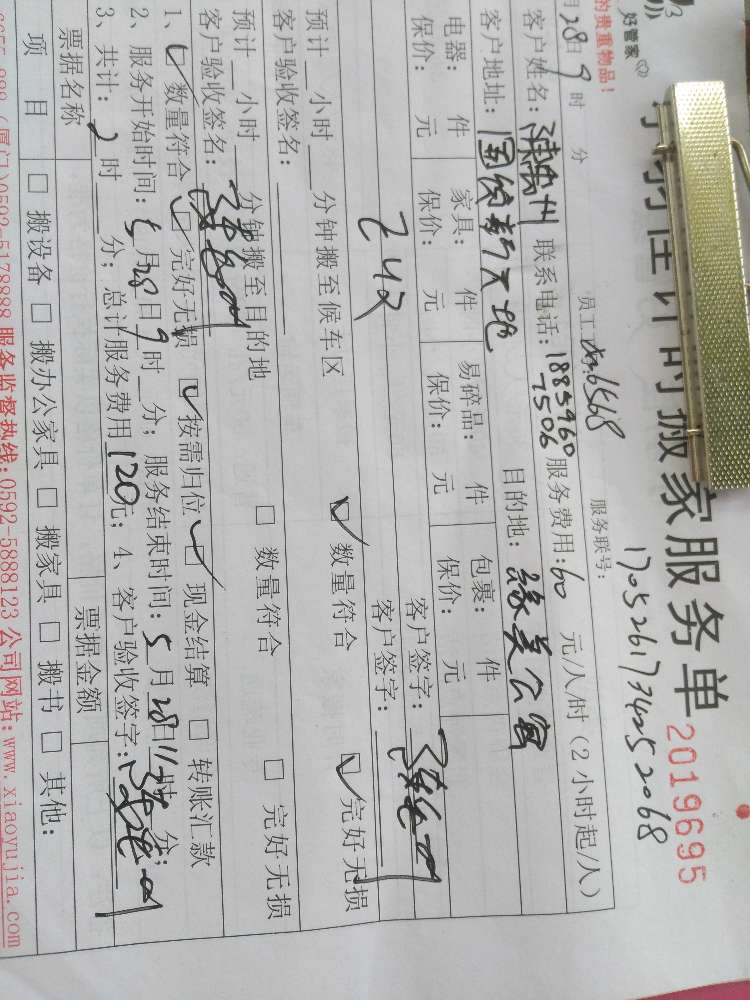 好管家
的贵重物品!
计时搬家服务单
2019695
1705261734252068
员工 6568 服务联号:
28日9时 分
客户姓名: 联系电话: 18859607506 服务费用: 60 元/人/时 (2小时起/人)
客户地址: 国际新天地 目的地: 缘美公寓
电器: 件 家具: 件 易碎品: 件 包裹: 件 客户签字:
保价: 元 保价: 元 保价: 元 保价: 元 客户签字:
预计 小时 分钟搬至候车区 数量符合 完好无损
客户验收签名:
预计 小时 分钟搬至目的地 数量符合 完好无损
客户验收签名:
1、 数量符合 完好无损 按需归位 现金结算 转账汇款
2、服务开始时间: 5月28日9时 分; 服务结束时间: 5月28日11时 分;
3、共计: 2时 分; 总计服务费用120元; 4、客户验收签字:
票据名称 票据金额
项 目 搬设备 搬办公家具 搬家具 搬书 其他:
(厦门)0592-5178888 服务监督热线:0592-5888123 公司网站:www.xiaoyujia.com